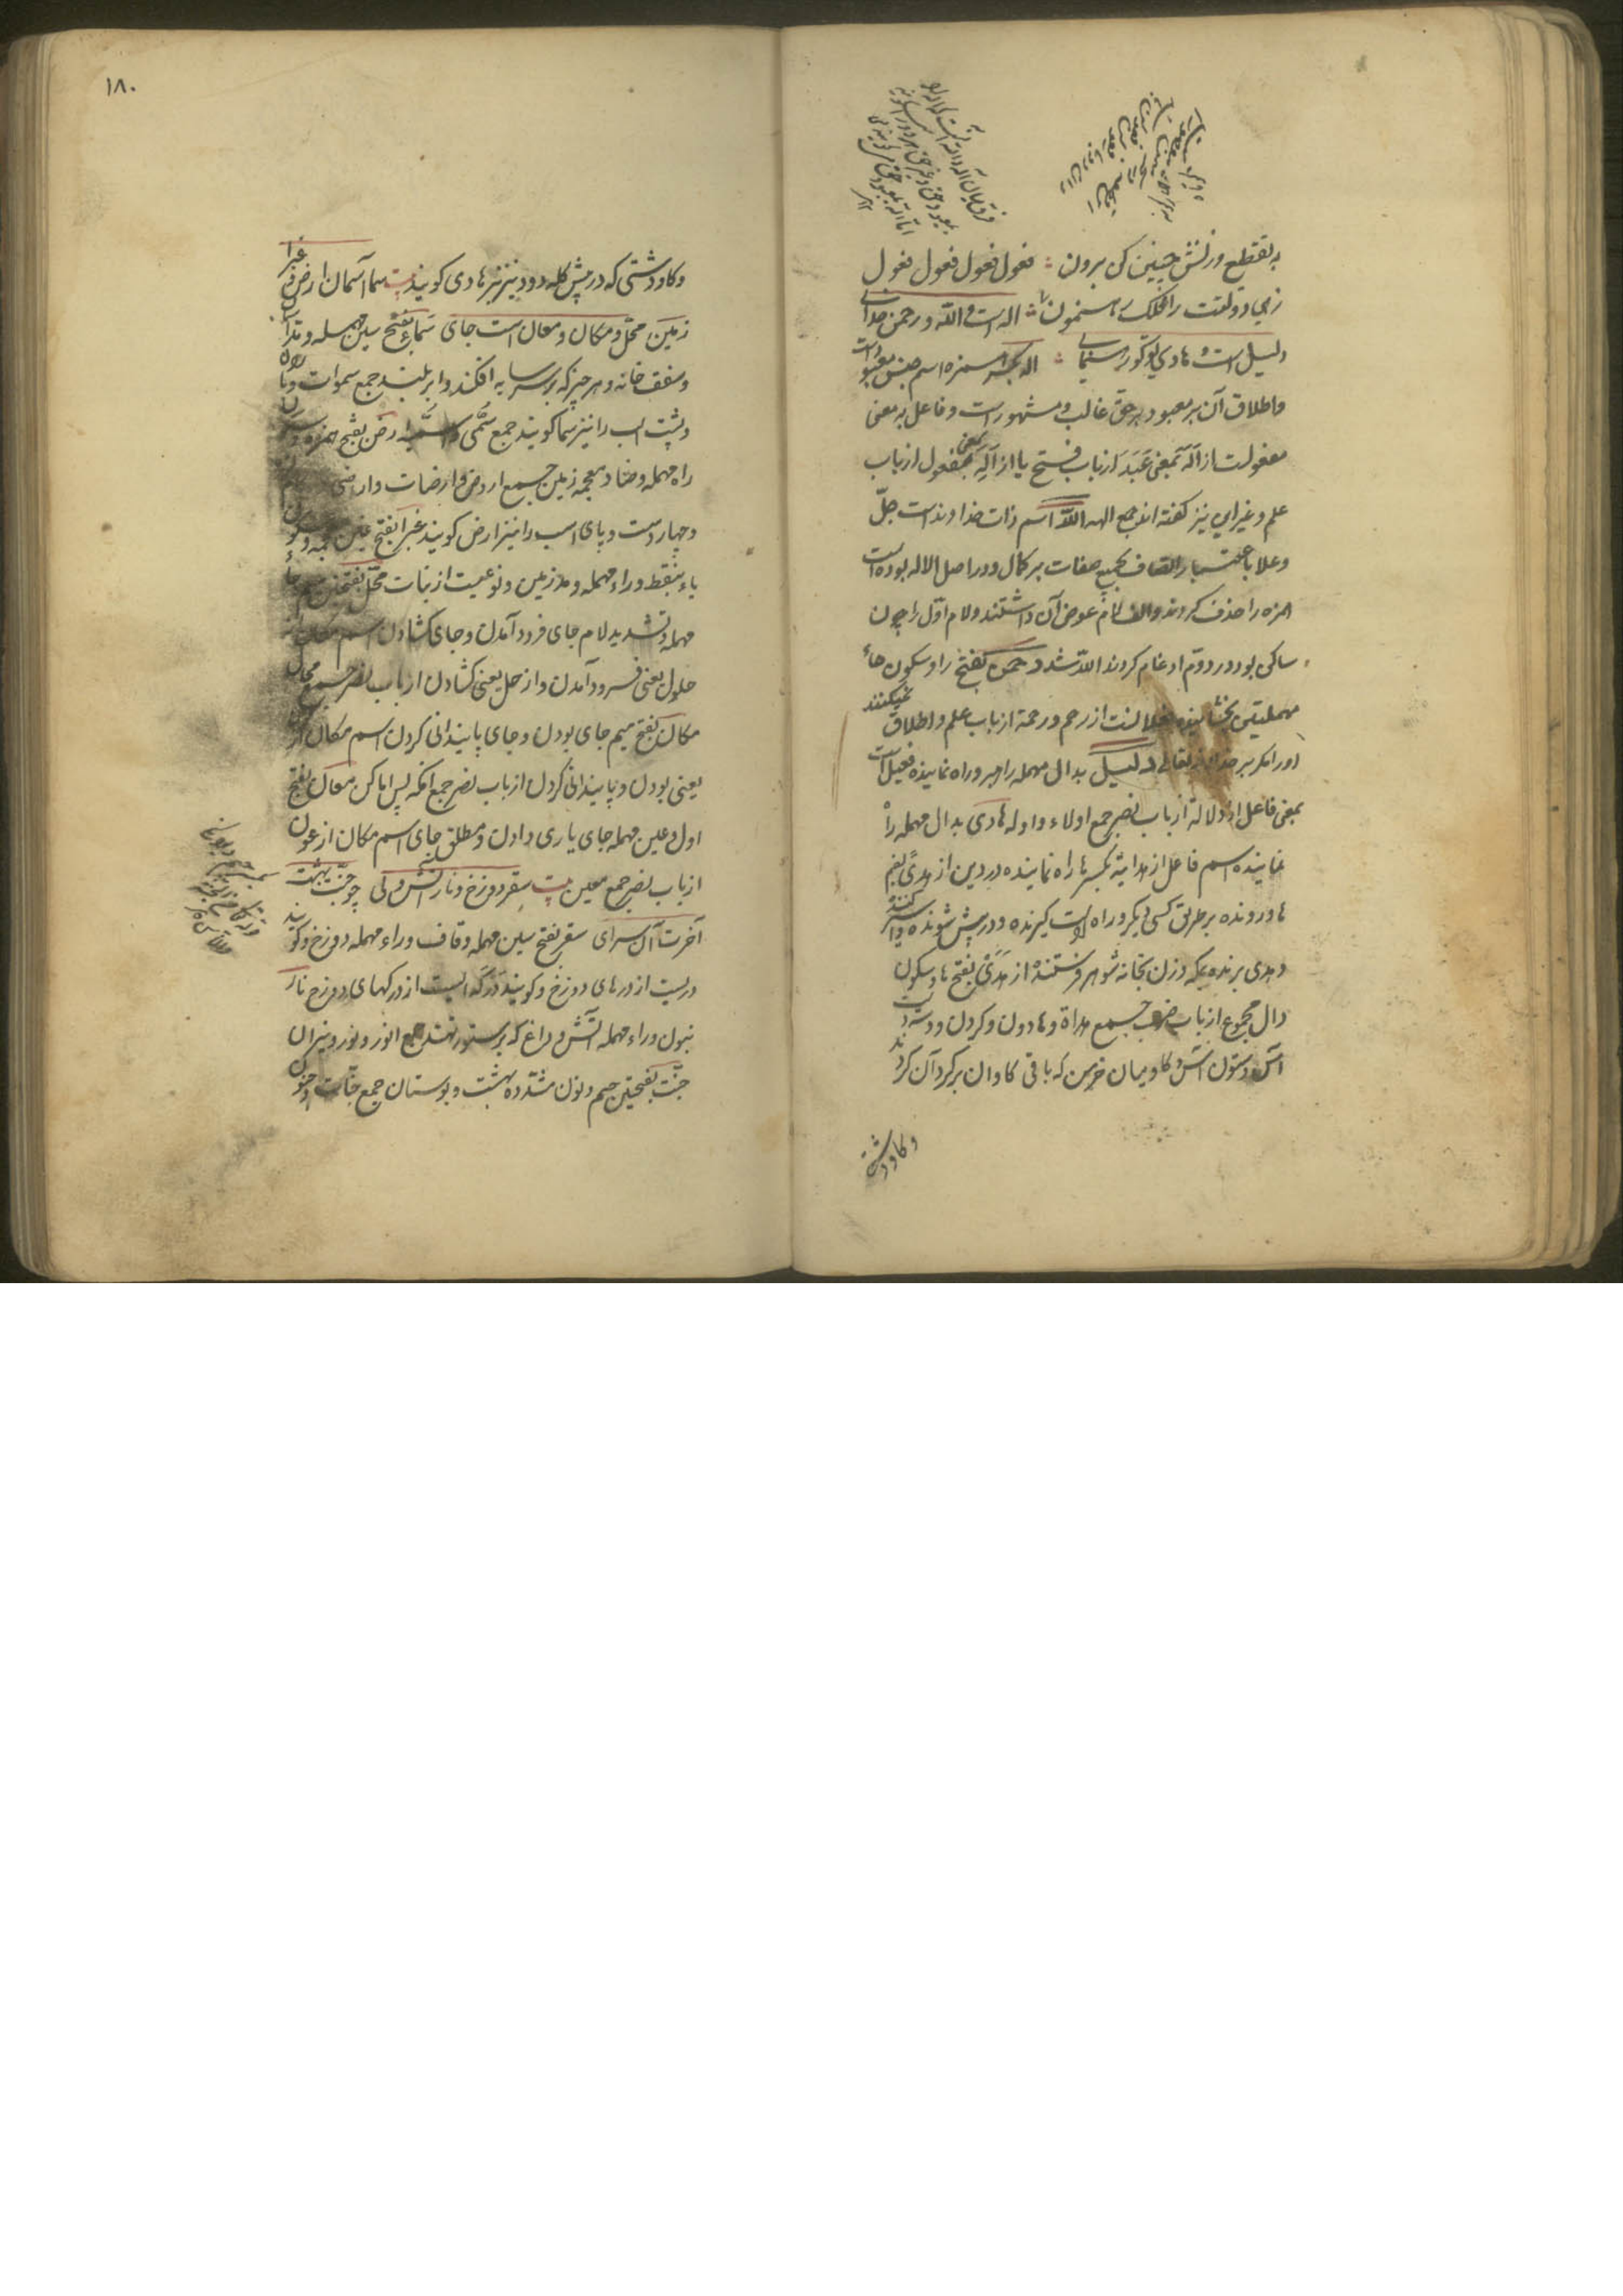 به تقطیع وزنش چنین کن برون فعول فعول فعول فعول
زهی دولتت را فلک رهنمون اله است و الله و رحمن خدای
دلیل است و هادی تو گو رهنمای اله بکسر همزه اسم جنس معبود است
و اطلاق آن بر معبود برحق غالب و مشهور است و فعال به معنی
مفعولست از اله بمعنی عبد از باب فتح یا از اله بمعنی مفعول از باب
علم و غیر این نیز گفته اند جمع الهه الله اسم ذات خداوند است جل
و علا باعتبار اتصاف بجمیع صفات بر کمال و در اصل الاله بوده است
همزه را حذف کردند و الف لام عوض آن داشتند و لام اول را چون
ساکن بود در دوم ادغام کردند الله شد رحمن بفتح را و سکون حاء
مهملتین بخشاینده از رحم و رحمة از باب علم و اطلاق نمیکنند
او را مگر بر خدای تعالی دلیل بدال مهمله راهبر و راه نماینده فعیل است
بمعنی فاعل از دلالة از باب نصر جمع اولاء و ادله هادی بدال مهمله راه
نماینده اسم فاعل از هدایة بکسر ها راه نماینده در دین از هدی بضم
ها و رونده بر طریق کسی دیگر و راه راست گیرنده و در پیش شونده
و هدی برنده بمکه و زن بخانه شوهر فرستنده از هدی بفتح ها و سکون
دال مجموع از باب ضرب جمع هداة و هادون و گردن و دسته
آس و ستون آس و گاو میان خرمن که باقی گاوان بر گرد آن گردند
و گاو دشتی
۱۸۰
و گاو دشتی که در پیش گله رود نیز هادی گویند سما آسمان ارض و غبرا
زمین محل و مکان و معان است جای سماء بفتح سین مهمله و مد آسمان
و سقف خانه و هر چیز که بر سر سایه افکند و ابر بلند جمع سموات و باران
و پشت اسب را نیز سما گویند جمع سمی ارض بفتح همزه و سکون
راء مهمله و ضاد معجمه زمین جمع اروض و ارضات و اراضی
و چهار دست و پای اسب را نیز ارض گویند غبرا بفتح غین معجمه و سکون
باء بنقطه و راء مهمله و مد زمین و نوعیست از نبات محل بفتحتین میم و حاء
مهمله و تشدید لام جای فرود آمدن و جای گشادن اسم مکان از
حلول یعنی فرود آمدن و از حل یعنی گشادن از باب نصر جمع محال
مکان بفتح میم جای بودن و جای پایندانی کردن اسم مکان از کون
یعنی بودن و پایندانی کردن از باب نصر جمع امکنه پس اماکن معان بفتح
اول و عین مهمله جای یاری دادن و مطلق جای اسم مکان از عون
از باب نصر جمع معین سقر دوزخ و نار آتش ولی چو جنت بهشت
آخرت آن سرای سقر بفتح سین مهمله و قاف و راء مهمله دوزخ و گویند
دریست از درهای دوزخ و گویند درکه ایست از درکهای دوزخ نار
بنون و راء مهمله آتش و داغ که بر ستور نهند جمع انور و نور و نیران
جنت بفتحتین جیم و نون مشدده بهشت و بوستان جمع جنات و جنون